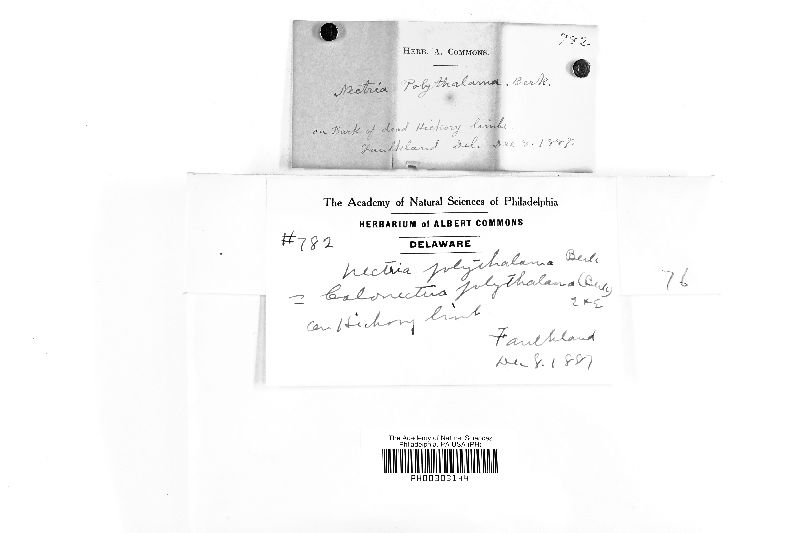 782
HERB. A. COMMONS.
Nectria Polythalama. Berk.
on Bark of dead Hickory limbs.
Faulkland Del. Dec 8. 1887.
The Academy of Natural Sciences of Philadelphia
HERBARIUM of ALBERT COMMONS
DELAWARE
#782
Nectria polythalama Berk
= Calonectria polythalama (Berk)
on Hickory limb
Faulkland
Dec 8. 1887
76
The Academy of Natural Sciences
Philadelphia, PA USA (PH)